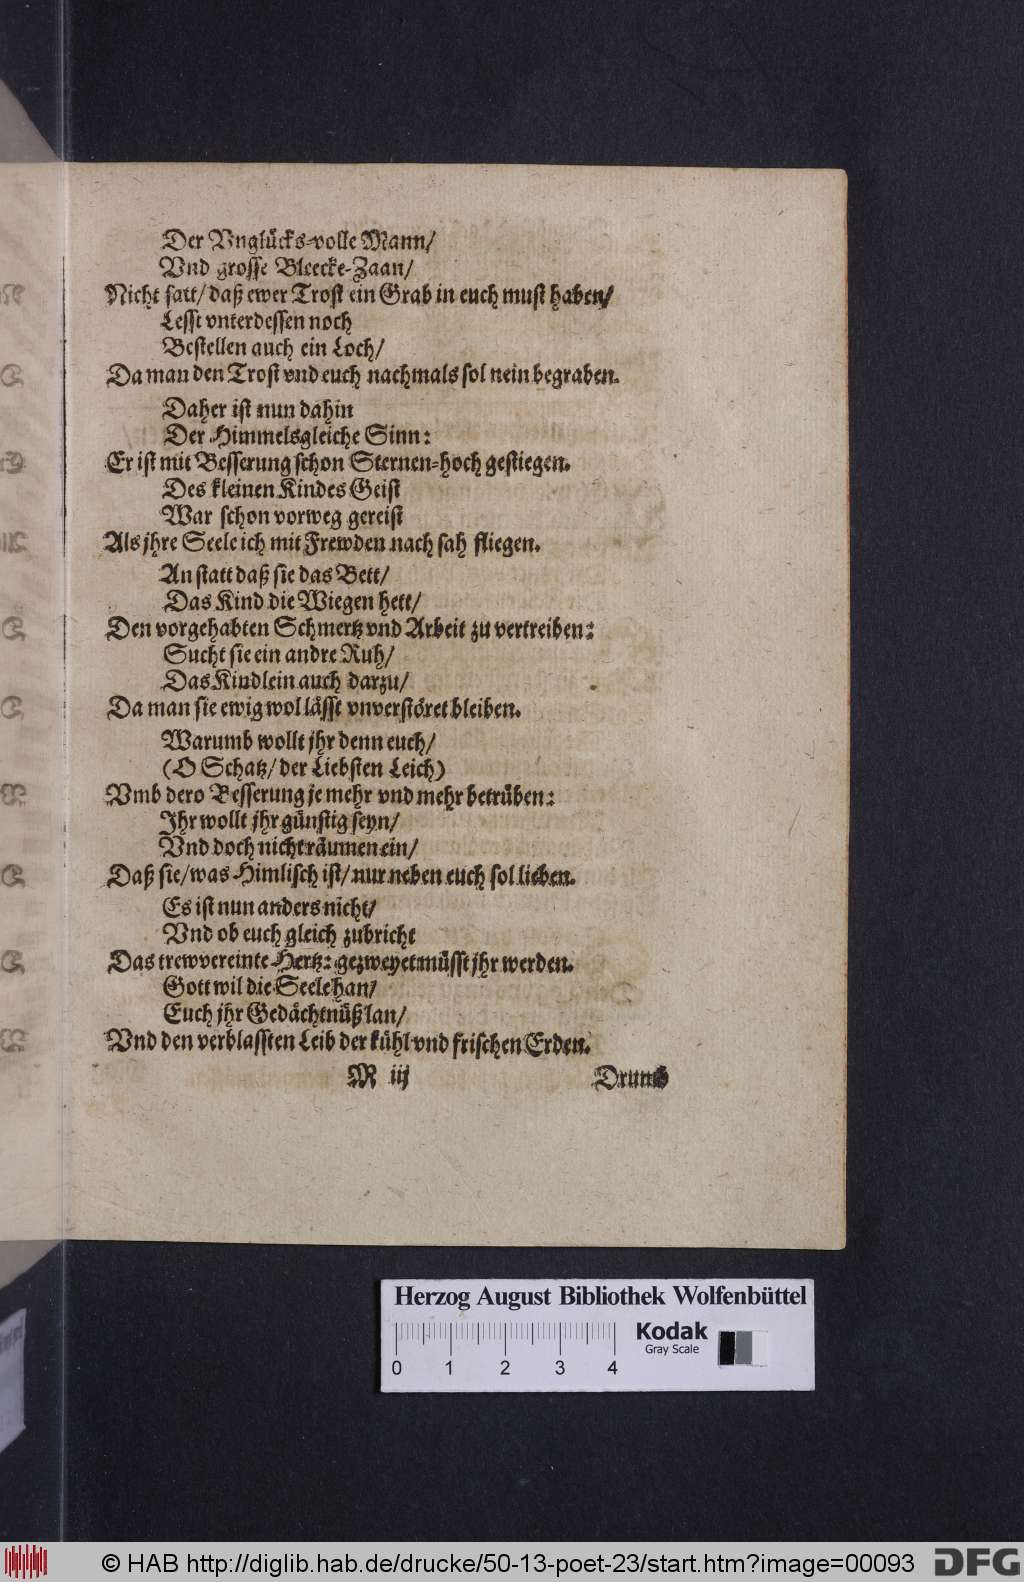 Der Vnglücks-volle Mann/
Vnd grosse Bleecke-Zaan/
Nicht satt/ daß ewer Trost ein Grab in euch must haben/
Lesst vnterdessen noch
Bestellen auch ein Loch/
Da man den Trost vnd euch nachmals sol nein begraben.
Daher ist nun dahin
Der Himmelsgleiche Sinn:
Er ist mit Besserung schon Sternen-hoch gestiegen.
Des kleinen Kindes Geist
War schon vorweg gereist
Als jhre Seele ich mit Frewden nach sah fliegen.
An statt daß sie das Bett/
Das Kind die Wiegen hett/
Den vorgehabten Schmertz vnd Arbeit zu vertreiben:
Sucht sie ein andre Ruh/
Das Kindlein auch darzu/
Da man sie ewig wol lässt vnverstöret bleiben.
Warumb wollt jhr denn euch/
(O Schatz/ der Liebsten Leich)
Vmb dero Besserung je mehr vnd mehr betrüben:
Jhr wollt jhr günstig seyn/
Vnd doch nicht räumen ein/
Daß sie/ was Himlisch ist/ nur neben euch sol lieben.
Es ist nun anders nicht/
Vnd ob euch gleich zubricht
Das trewvereinte Hertz: gezweyet müsst jhr werden.
Gott wil die Seele han/
Euch jhr Gedächtnüß lan/
Vnd den verblassten Leib der kühl vnd frischen Erden.
M iij Drumb
Herzog August Bibliothek Wolfenbüttel
Kodak
Gray Scale
0 1 2 3 4
© HAB http://diglib.hab.de/drucke/50-13-poet-23/start.htm?image=00093
DFG